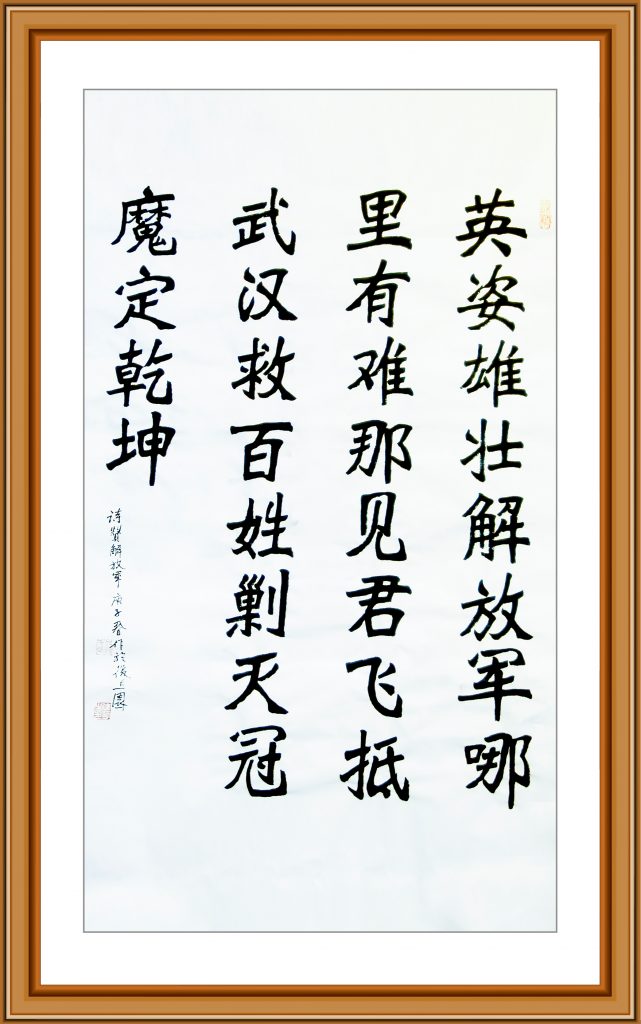 英姿雄壮解放军哪
里有难那见君飞抵
武汉救百姓剿灭冠
魔定乾坤
诗贊解放军 庚子春作於